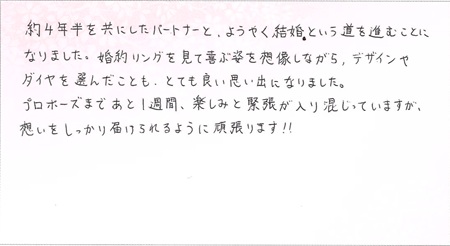 約4年半を共にしたパートナーと、ようやく結婚という道を進むことに
なりました。婚約リングを見て喜ぶ姿を想像しながら、デザインや
ダイヤを選んだことも、とても良い思い出になりました。
プロポーズまであと1週間、楽しみと緊張が入り混じっていますが、
想いをしっかり届けられるように頑張ります!!